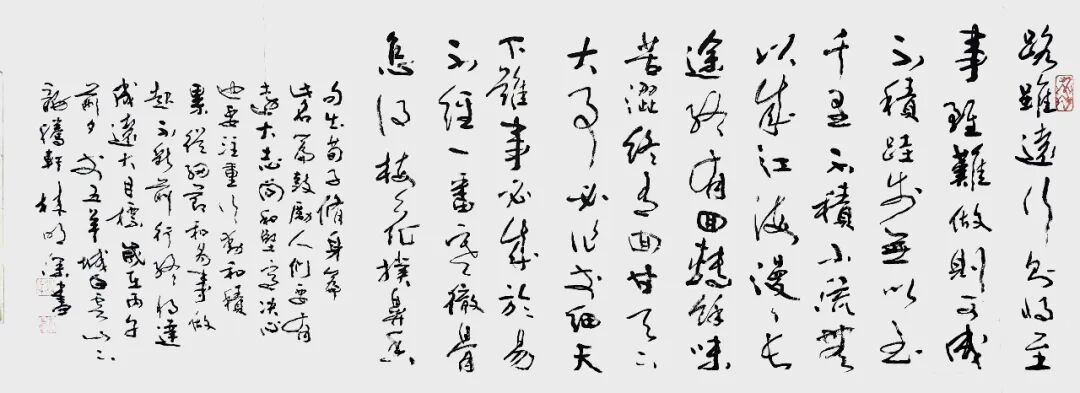 路雖遠行則將至
事雖難做則可成
不積跬步無以至
千里不積小流無
以成江海漫漫长
途終有回轉餘味
苦澀終有回甘天下
大事必作于細天
下雖事必成於易
不經一番寒徹骨
怎得梅花撲鼻香
句出荀子脩身篇
此名篇鼓勵人們要有
遠大志向和堅定决心
也要注重行動和積
累從細節和易事做
起不斷前行終將達
成遠大目標歲在丙午
前夕於五羊城白雲山下
騰軒林明深書